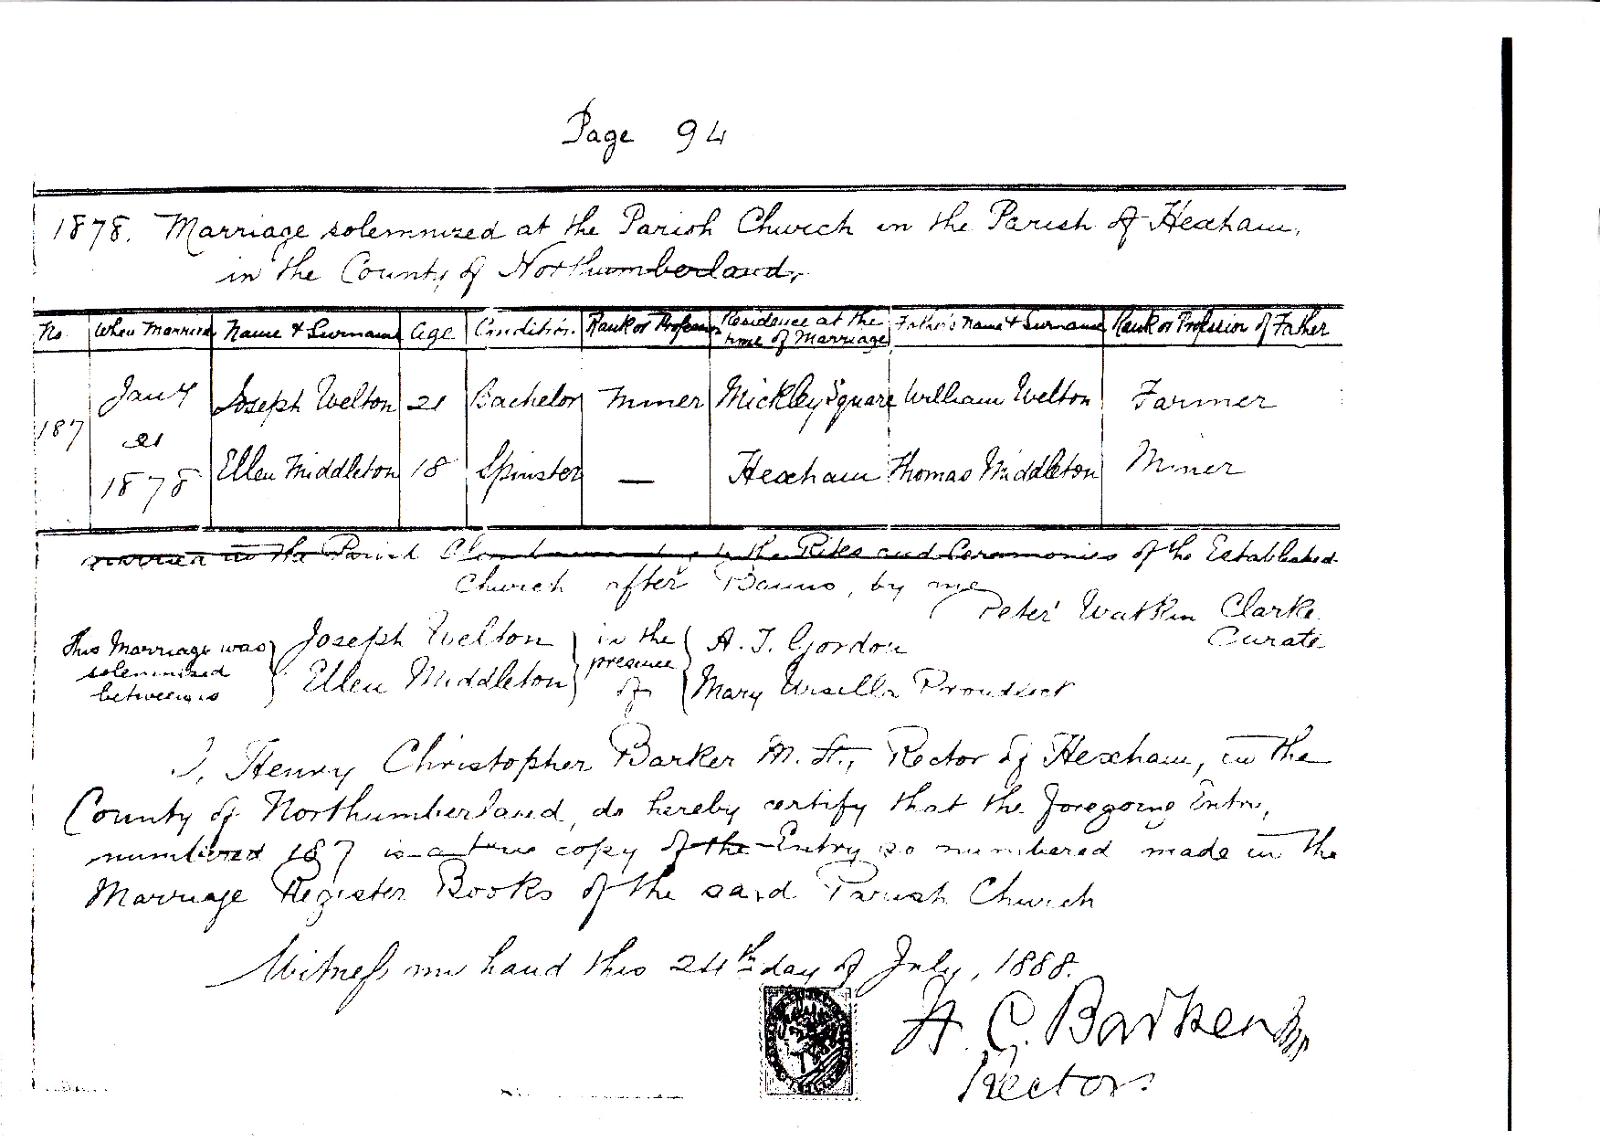 Page 94
1878. Marriage solemnized at the Parish Church in the Parish of Hexham,
in the County of Northumberland,
No. When Married Name & Surname Age Condition Rank or Profession Residence at the time of Marriage Father's Name & Surname Rank or Profession of Father
187 Jany 21 1878 Joseph Welton 21 Bachelor Miner Mickley Square William Welton Farmer
Ellen Middleton 18 Spinster — Hexham Thomas Middleton Miner
married in the Parish Church according to the Rites and Ceremonies of the Established
Church after Banns, by me
Peter Watkin Clarke
Curate
This Marriage was solemnized between us Joseph Welton Ellen Middleton in the presence of A. T. Gordon Mary Ursella
I, Henry Christopher Barker M. A., Rector of Hexham, in the
County of Northumberland, do hereby certify that the foregoing Entry,
numbered 187 is a true copy of the Entry so numbered made in the
Marriage Register Books of the said Parish Church
Witness my hand this 24th day of July, 1888.
H. C. Barker
Rector